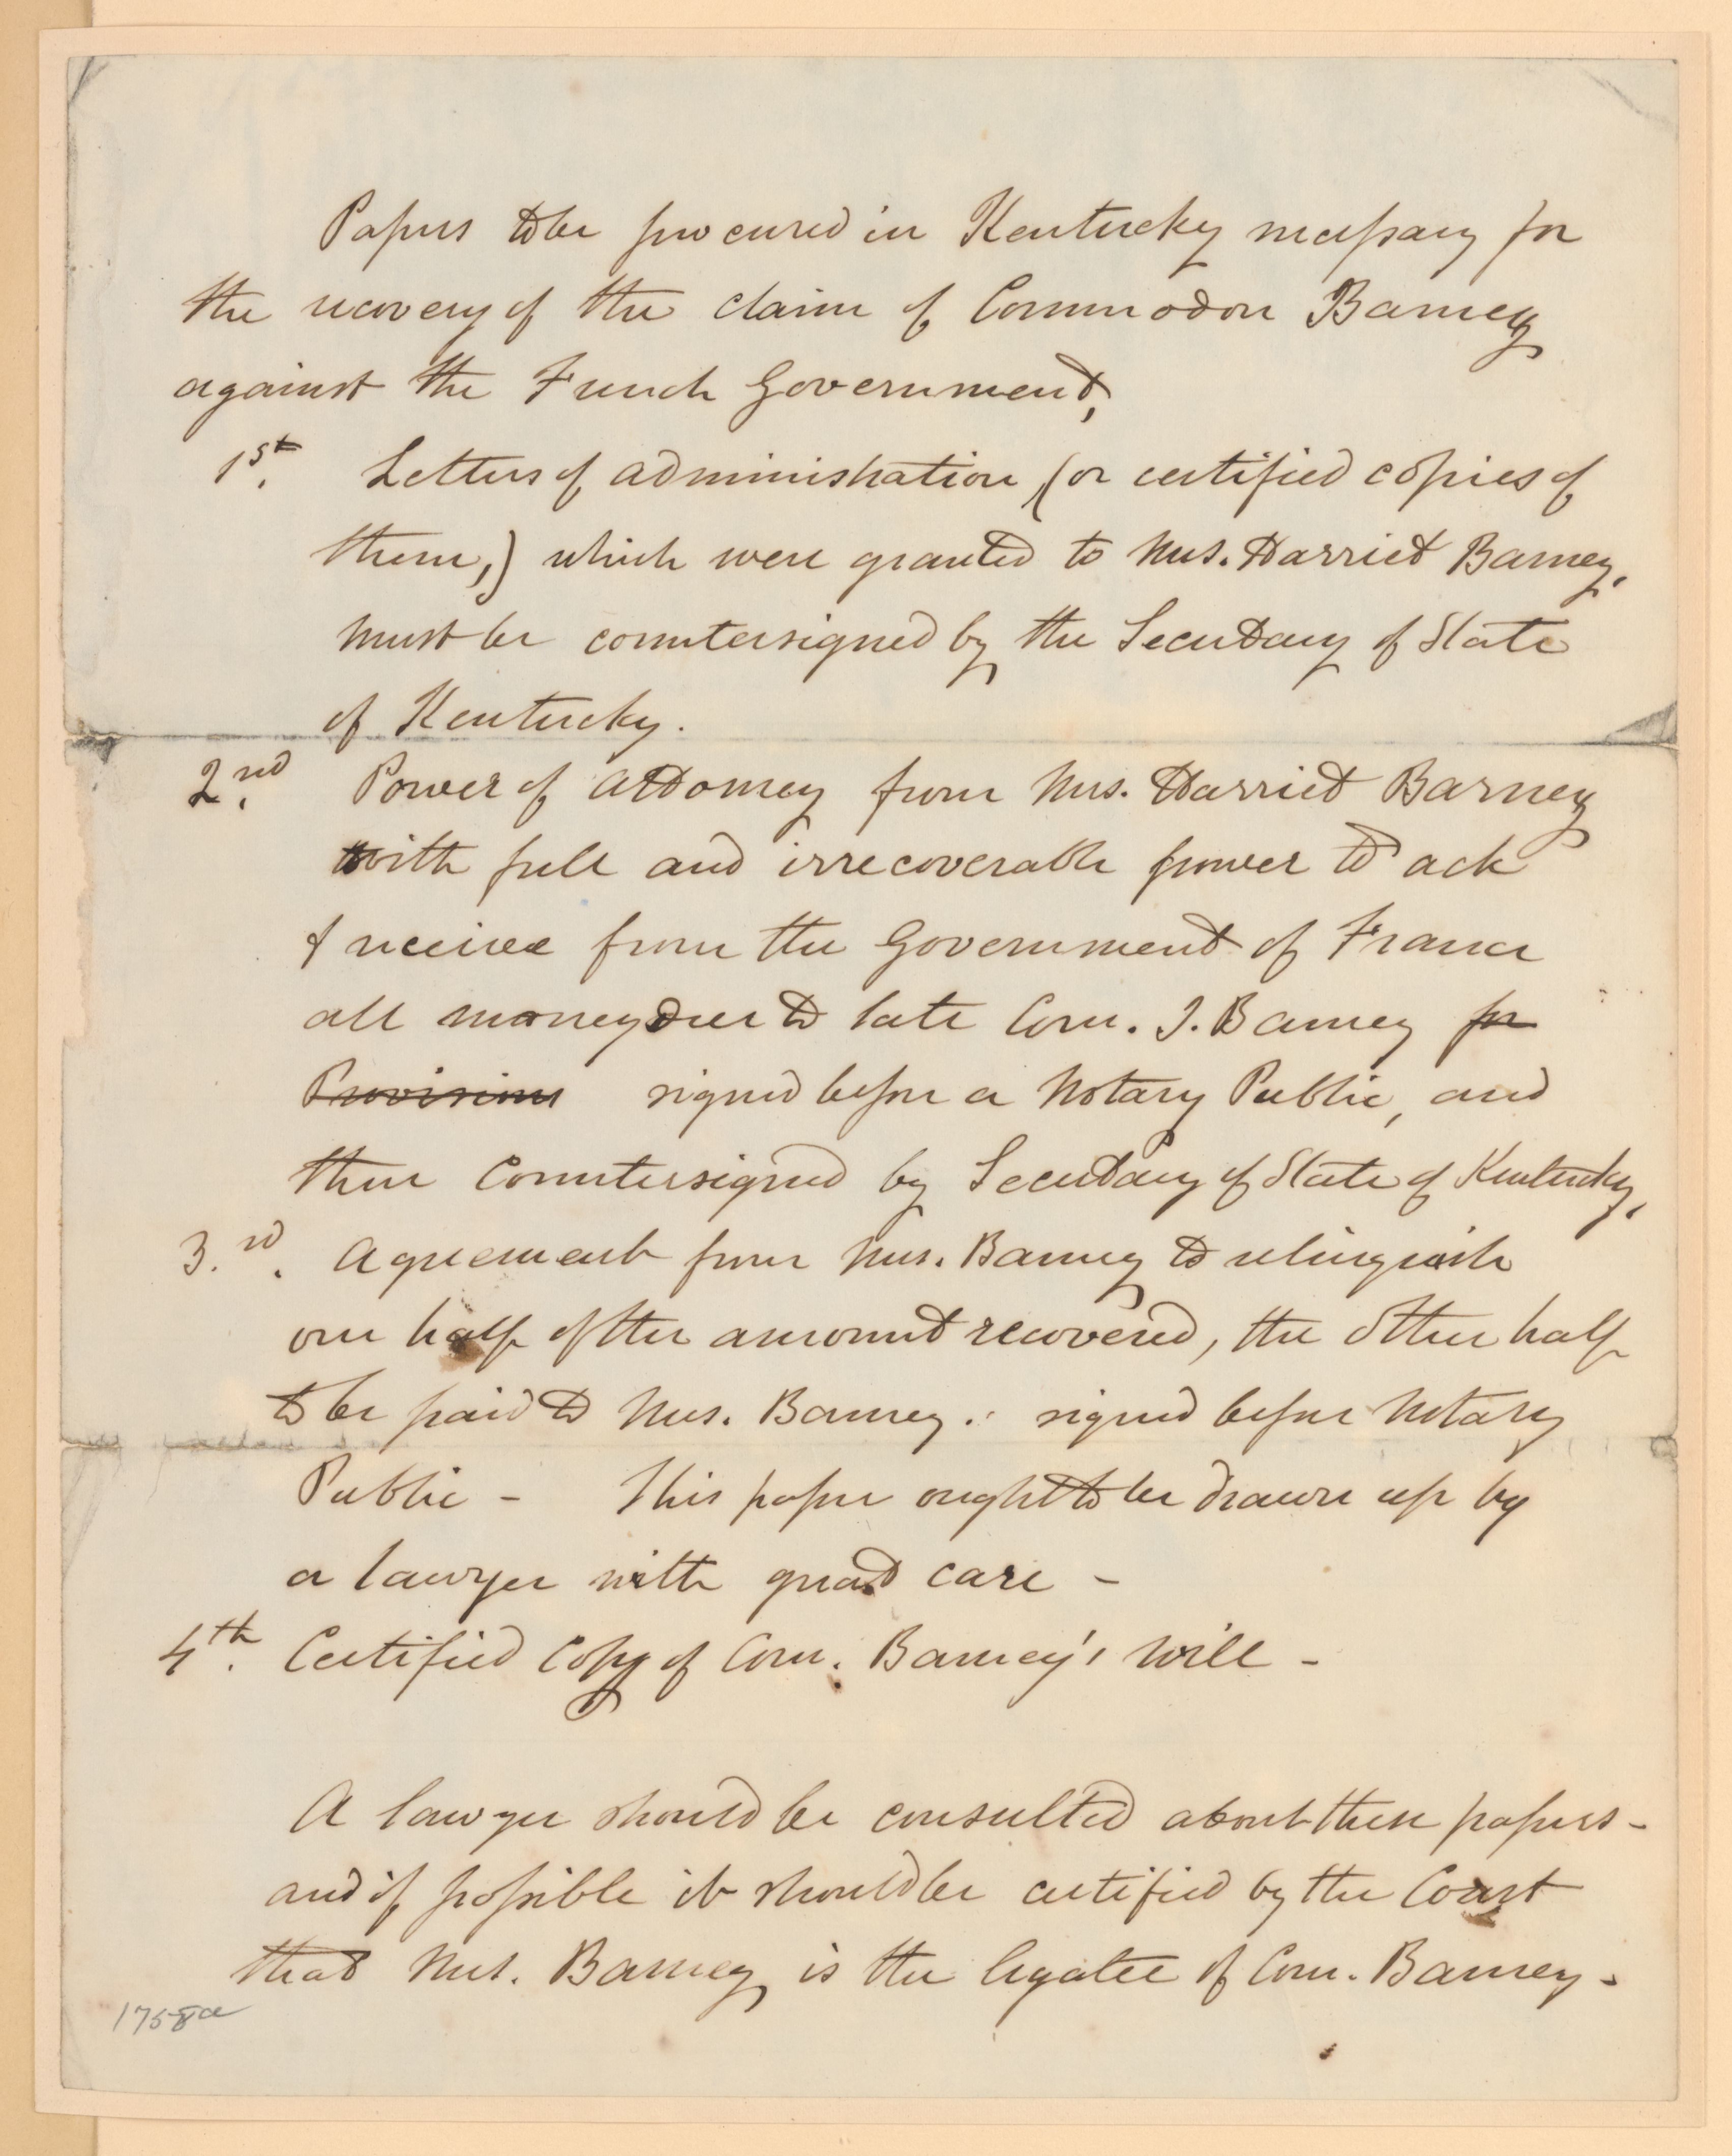 Papers to be procured in Kentucky necessary for
the recovery of the claim of Commodore Barney
against the French Government,
1st. Letters of administration (or certified copies of
them,) which were granted to Mrs. Harriet Barney,
must be countersigned by the Secretary of State
of Kentucky.
2nd. Power of Attorney from Mrs. Harriet Barney
with full and irrecoverable power to ack
& receive from the Government of France
all money due to late Com. J. Barney for
Provisions signed before a Notary Public, and
then Countersigned by Secretary of State of Kentucky,
3.rd. Agreement from Mrs. Barney to relinquish
one half of the amount recovered, the other half
to be paid to Mrs. Barney. signed before Notary
Public - This paper ought to be drawn up by
a lawyer with great care -
4th. Certified Copy of Com. Barney's Will -
A lawyer should be consulted about these papers -
and if possible it should be certified by the Court
that Mrs. Barney is the legatee of Com. Barney -
1758a